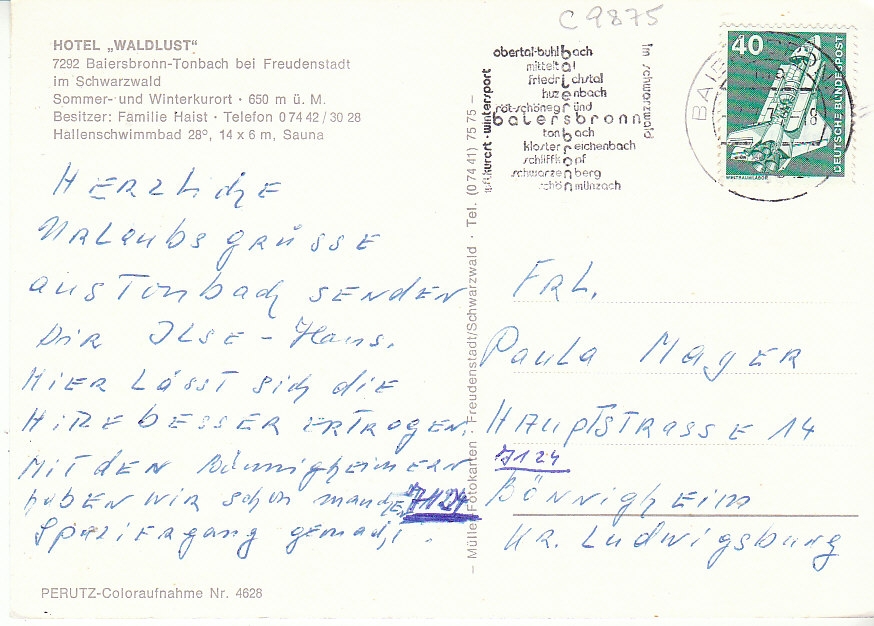 C 9875
HOTEL „WALDLUST“
7292 Baiersbronn-Tonbach bei Freudenstadt
im Schwarzwald
Sommer- und Winterkurort · 650 m ü. M.
Besitzer: Familie Haist · Telefon 0 74 42 / 30 28
Hallenschwimmbad 28°, 14 x 6 m, Sauna
HERZLiche
URLaubsGRÜSSE
aus Tonbach SENDEN
Dir ILSE - Hans.
HIER LÄSST sich die
HiTZE BESSER ERTRAGEN.
MIT DEN Bönnigheimern
haben wir schon manchen
Spaziergang gemacht.
7124
PERUTZ-Coloraufnahme Nr. 4628
– Müller Fotokarten · Freudenstadt/Schwarzwald · Tel. (0 74 41) 75 75 –
luftkurort · wintersport
obertal-buhlbach
mitteltal
friedrichstal
huzenbach
röt-schönegründ
baiersbronn
tonbach
klosterreichenbach
schliffkopf
schwarzenberg
schönmünzach
im schwarzwald
BAIE
40
DEUTSCHE BUNDESPOST
WELTRAUMLABOR
FRL.
Paula MayER
HAuptSTRASSE 14
7124
Bönnigheim
KR. Ludwigsburg